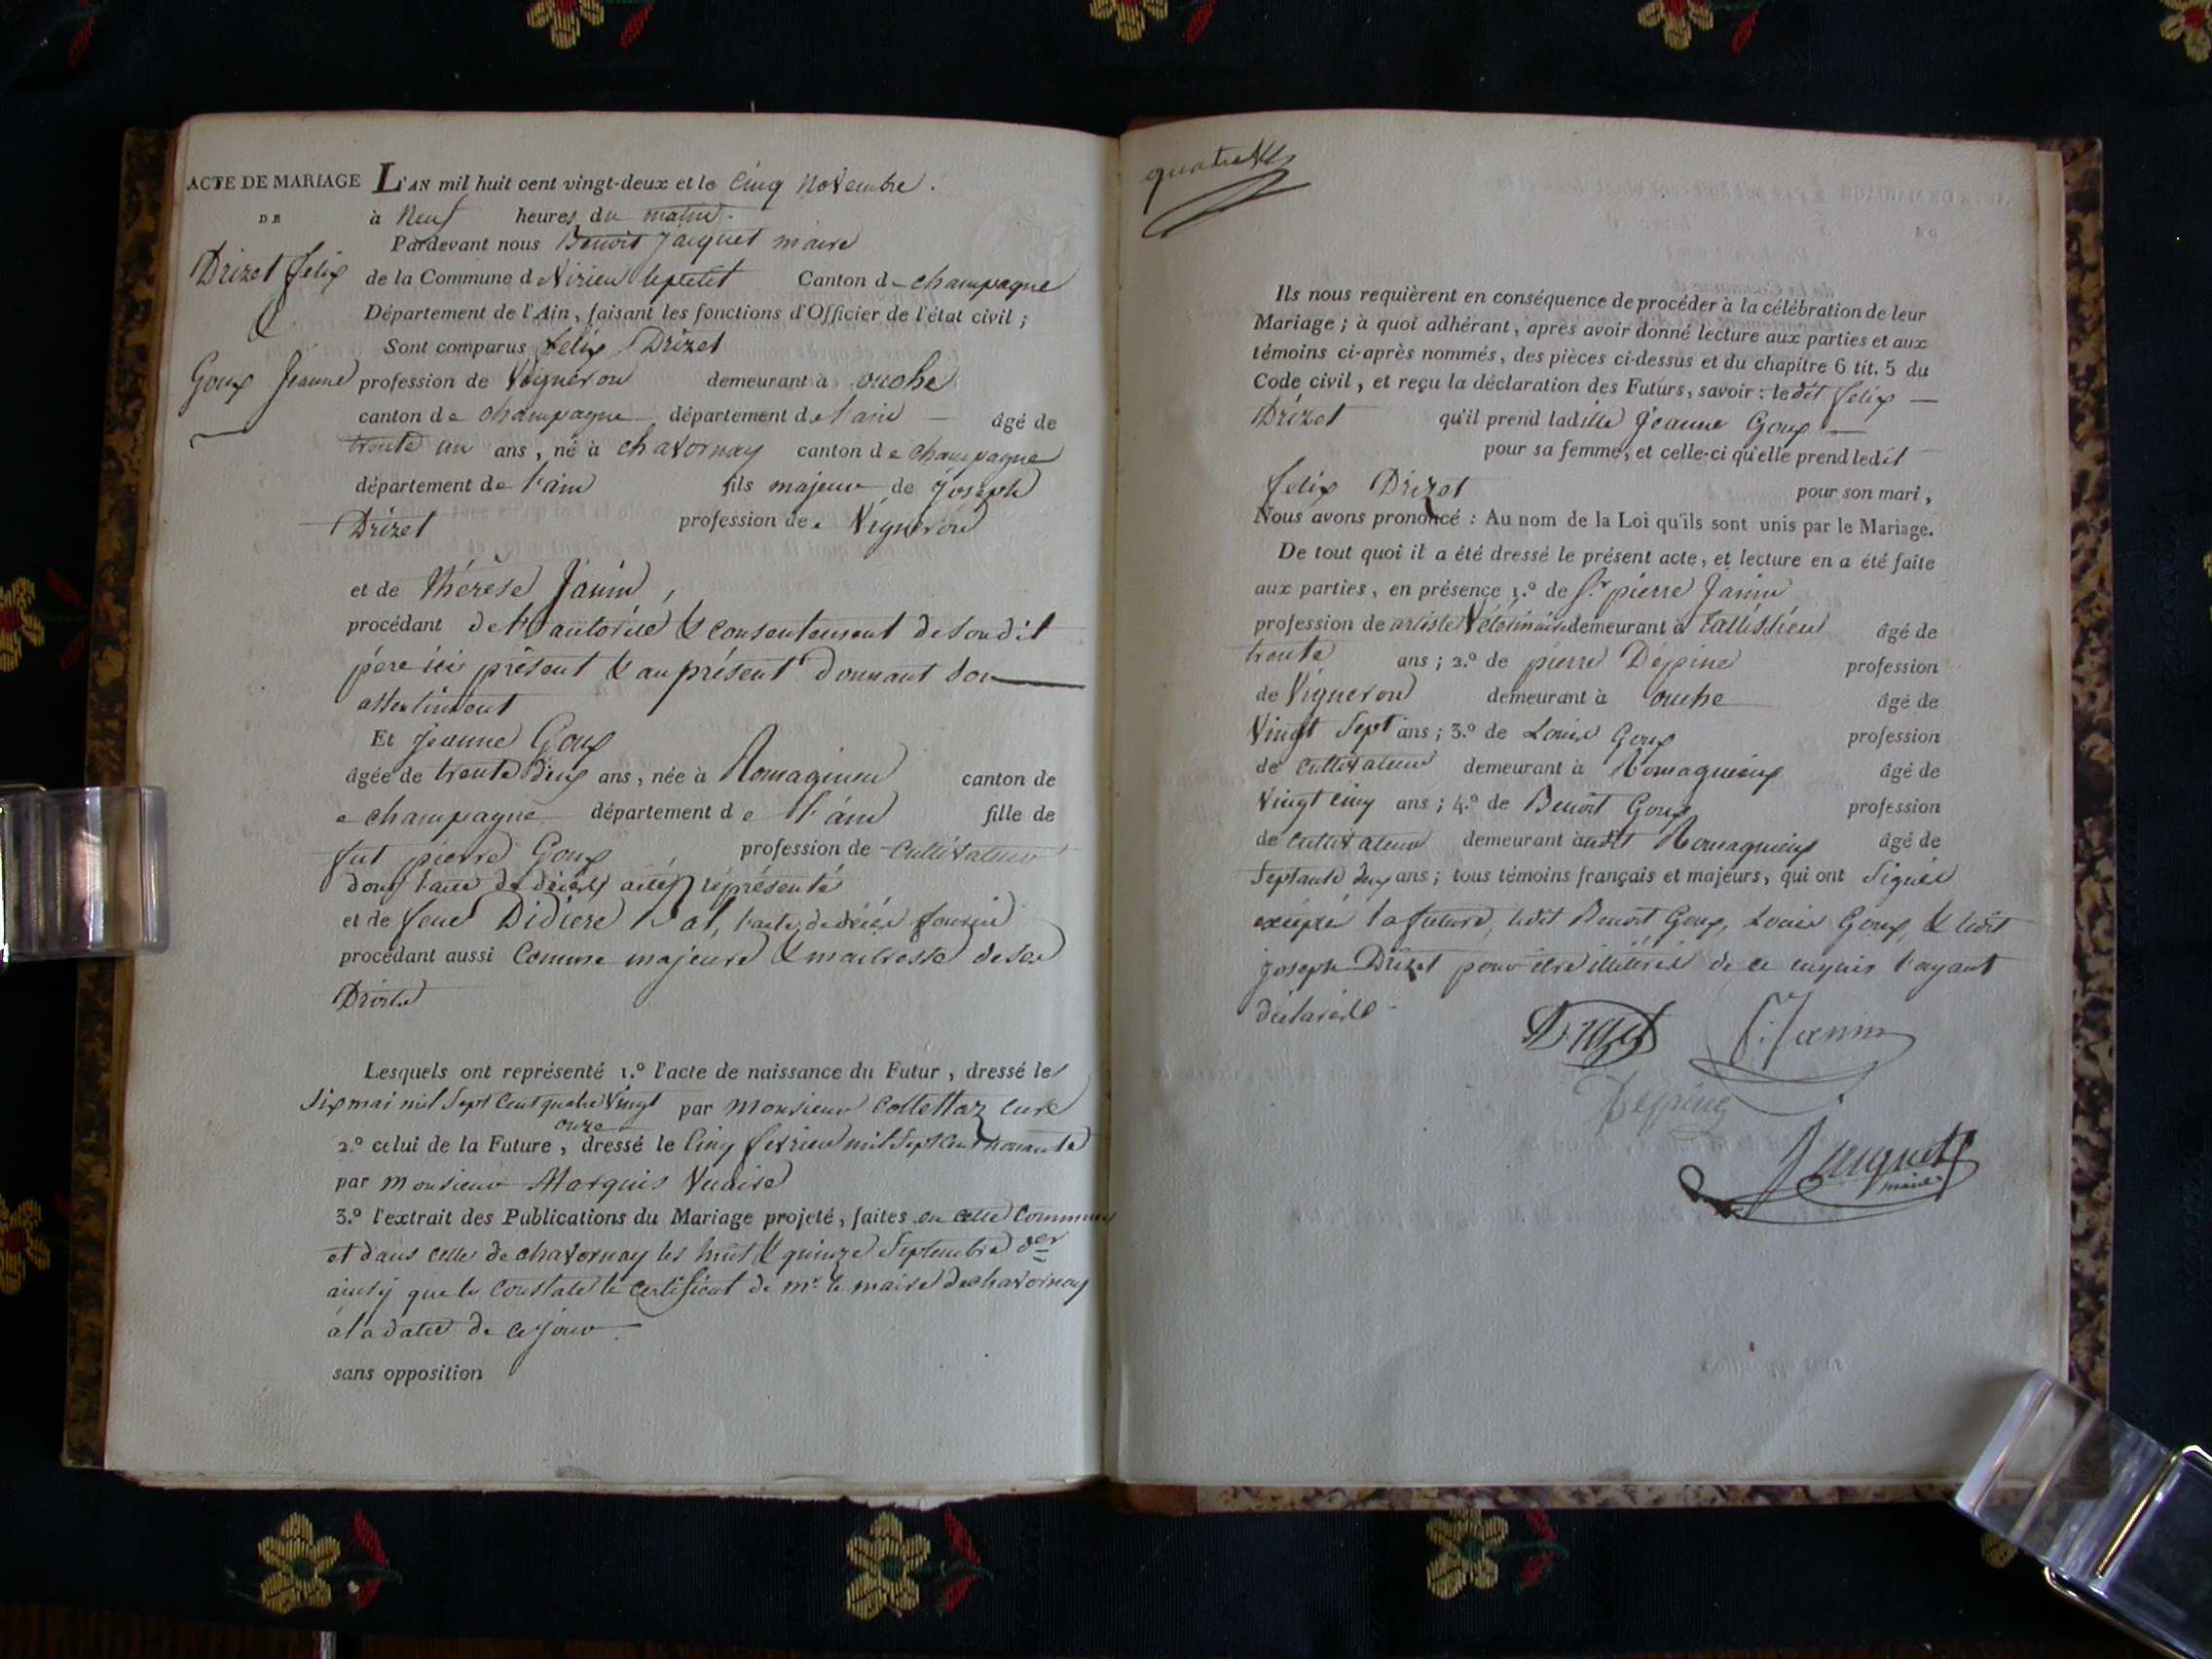 ACTE DE MARIAGE
DE
Drizet felix
&
Goux Jeanne
L'AN mil huit cent vingt-deux et le cinq Novembre.
à Neuf heures du matin.
Pardevant nous Benoit Jacquet maire
de la Commune d Virieu lepetit Canton de champagne
Département de l'Ain, faisant les fonctions d'Officier de l'état civil ;
Sont comparus felix Drizet
profession de Vigneron demeurant à ouche
canton de champagne département de l'ain âgé de
trente un ans, né à chavornay canton de champagne
département de l'ain fils majeur de joseph
Drizet profession de Vigneron
et de thérèse Janin,
procédant de l'autorité & consentement desondit
père ici présent & au présent donnant son
assentiment
Et jeanne Goux
âgée de trente deux ans, née à Romagnieu canton de
e champagne département de l'ain fille de
fut pierre Goux profession de Cultivateur
dont l'acte de décès a été représenté
et de feue Didiere l'acte de décès fourni
procédant aussi Comme majeure & maitresse de ses
Droits
Lesquels ont représenté 1.º l'acte de naissance du Futur, dressé le
six mai mil sept Cent quatre Vingt par monsieur Collettaz curé
onze
2.º celui de la Future, dressé le Cinq fevrier mil sept cent nonante
par monsieur Marquis Vicaire
3.º l'extrait des Publications du Mariage projeté, faites en cette Commune
et dans celle de chavornay les huit & quinze Septembre der
ainsy que le Constate le Certificat de mr. le maire de chavornay
à la date de ce jour.
sans opposition
Ils nous requièrent en conséquence de procéder à la célébration de leur
Mariage ; à quoi adhérant, après avoir donné lecture aux parties et aux
témoins ci-après nommés, des pièces ci-dessus et du chapitre 6 tit. 5 du
Code civil, et reçu la déclaration des Futurs, savoir : ledit felix
Drizet qu'il prend ladite Jeanne Goux
pour sa femme, et celle-ci qu'elle prend ledit
felix Drizet pour son mari,
Nous avons prononcé : Au nom de la Loi qu'ils sont unis par le Mariage.
De tout quoi il a été dressé le présent acte, et lecture en a été faite
aux parties, en présence 1.º de Sr. pierre Janin
profession de artiste Vétérinaire demeurant à tallissieu âgé de
trente ans ; 2.º de pierre Dépine profession
de Vigneron demeurant à ouche âgé de
Vingt Sept ans ; 3.º de Louis Goux profession
de Cultivateur demeurant à Romagnieux âgé de
Vingt cinq ans ; 4.º de Benoit Goux profession
de Cultivateur demeurant audit Romagnieux âgé de
Septante deux ans ; tous témoins français et majeurs, qui ont signés
excepté la future, ledit Benoit Goux, Louis Goux, & ledit
joseph Drizet pour être illitérés de ce enquis l'ayant
déclarés.
Drizet
Janin
Depine
Jacquet
maire